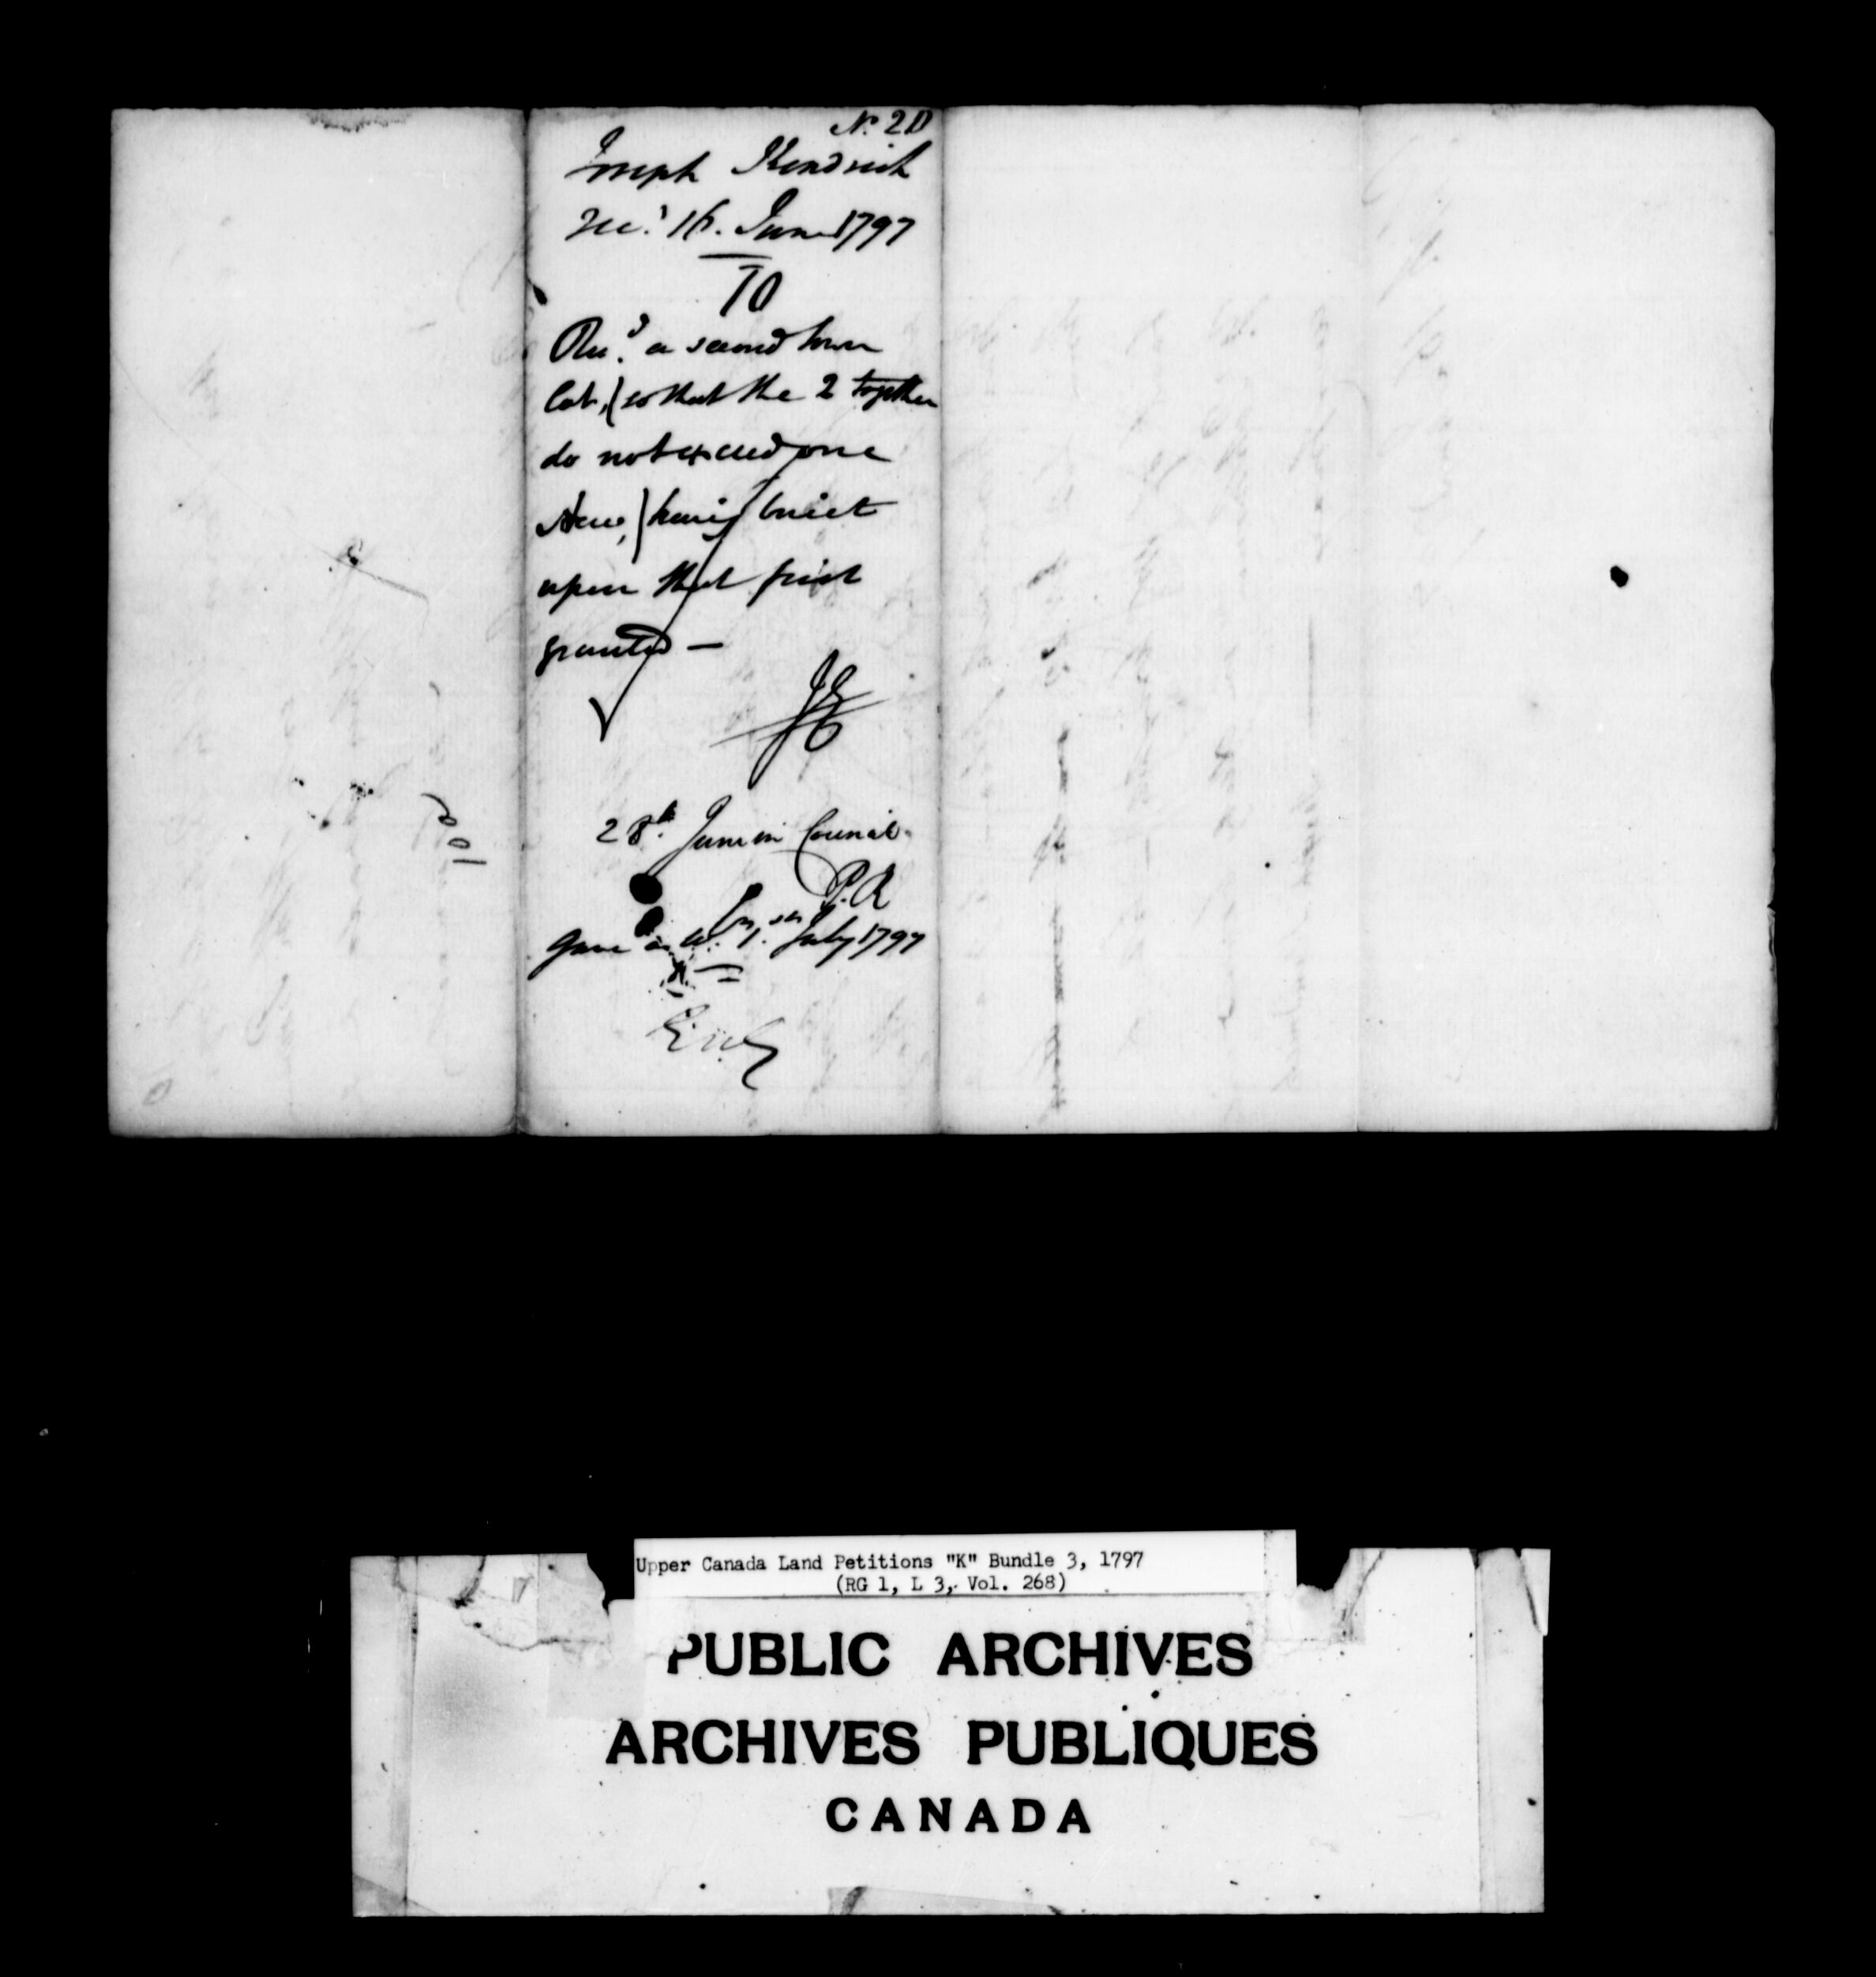 No. 20
Joseph Kendrick
Recd. 16. June 1797
10
Recd. a second town
lot, (so that the 2 together
do not exceed one
Acre,) having built
upon that first
granted —
28th. June in Council.
P.R
gave a Wt. 1st July 1797
100
Upper Canada Land Petitions "K" Bundle 3, 1797
(RG 1, L 3, Vol. 268)
PUBLIC ARCHIVES
ARCHIVES PUBLIQUES
CANADA